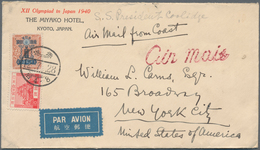 XII Olympiad in Japan 1940
THE MIYAKO HOTEL,
KYOTO, JAPAN.
S.S. President Coolidge
Air Mail from Coast
Air Mail
William L. Carns, Esq.
165 Broadway
New York City
United States of America
PAR AVION
航空郵便